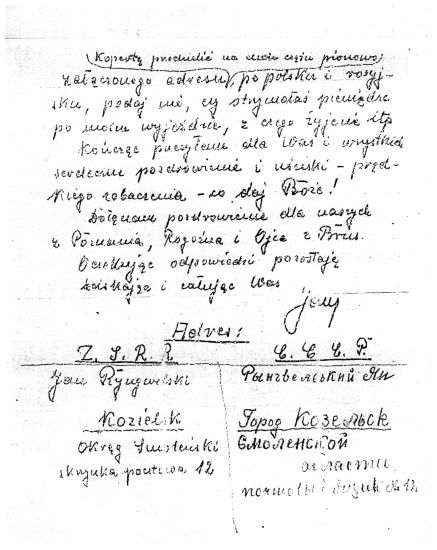 (Kopertę przedzielić na dwie części pionowo)
załączonego adresu, po polsku i rosyj-
sku, podaj mi, czy otrzymałaś pieniądze
po moim wyjeździe, z czego żyjecie itp
Kończąc przesyłam dla Was i wszystkich
serdeczne pozdrowienia i uściski – pręd-
kiego zobaczenia – co daj Boże!
Dołączam pozdrowienia dla naszych
z Poznania, Rogoźna i Ojca z
Oczekując odpowiedzi pozostaję
ściskając i całując Was
Adres:
Z. S. R. R
С. С. С. Р.
Jan
Рынгвельский Ян
Kozielsk
Город Козельск
Okręg Smoleński
Смоленской
skrzynka pocztowa 12
области
почтовый ящик № 12